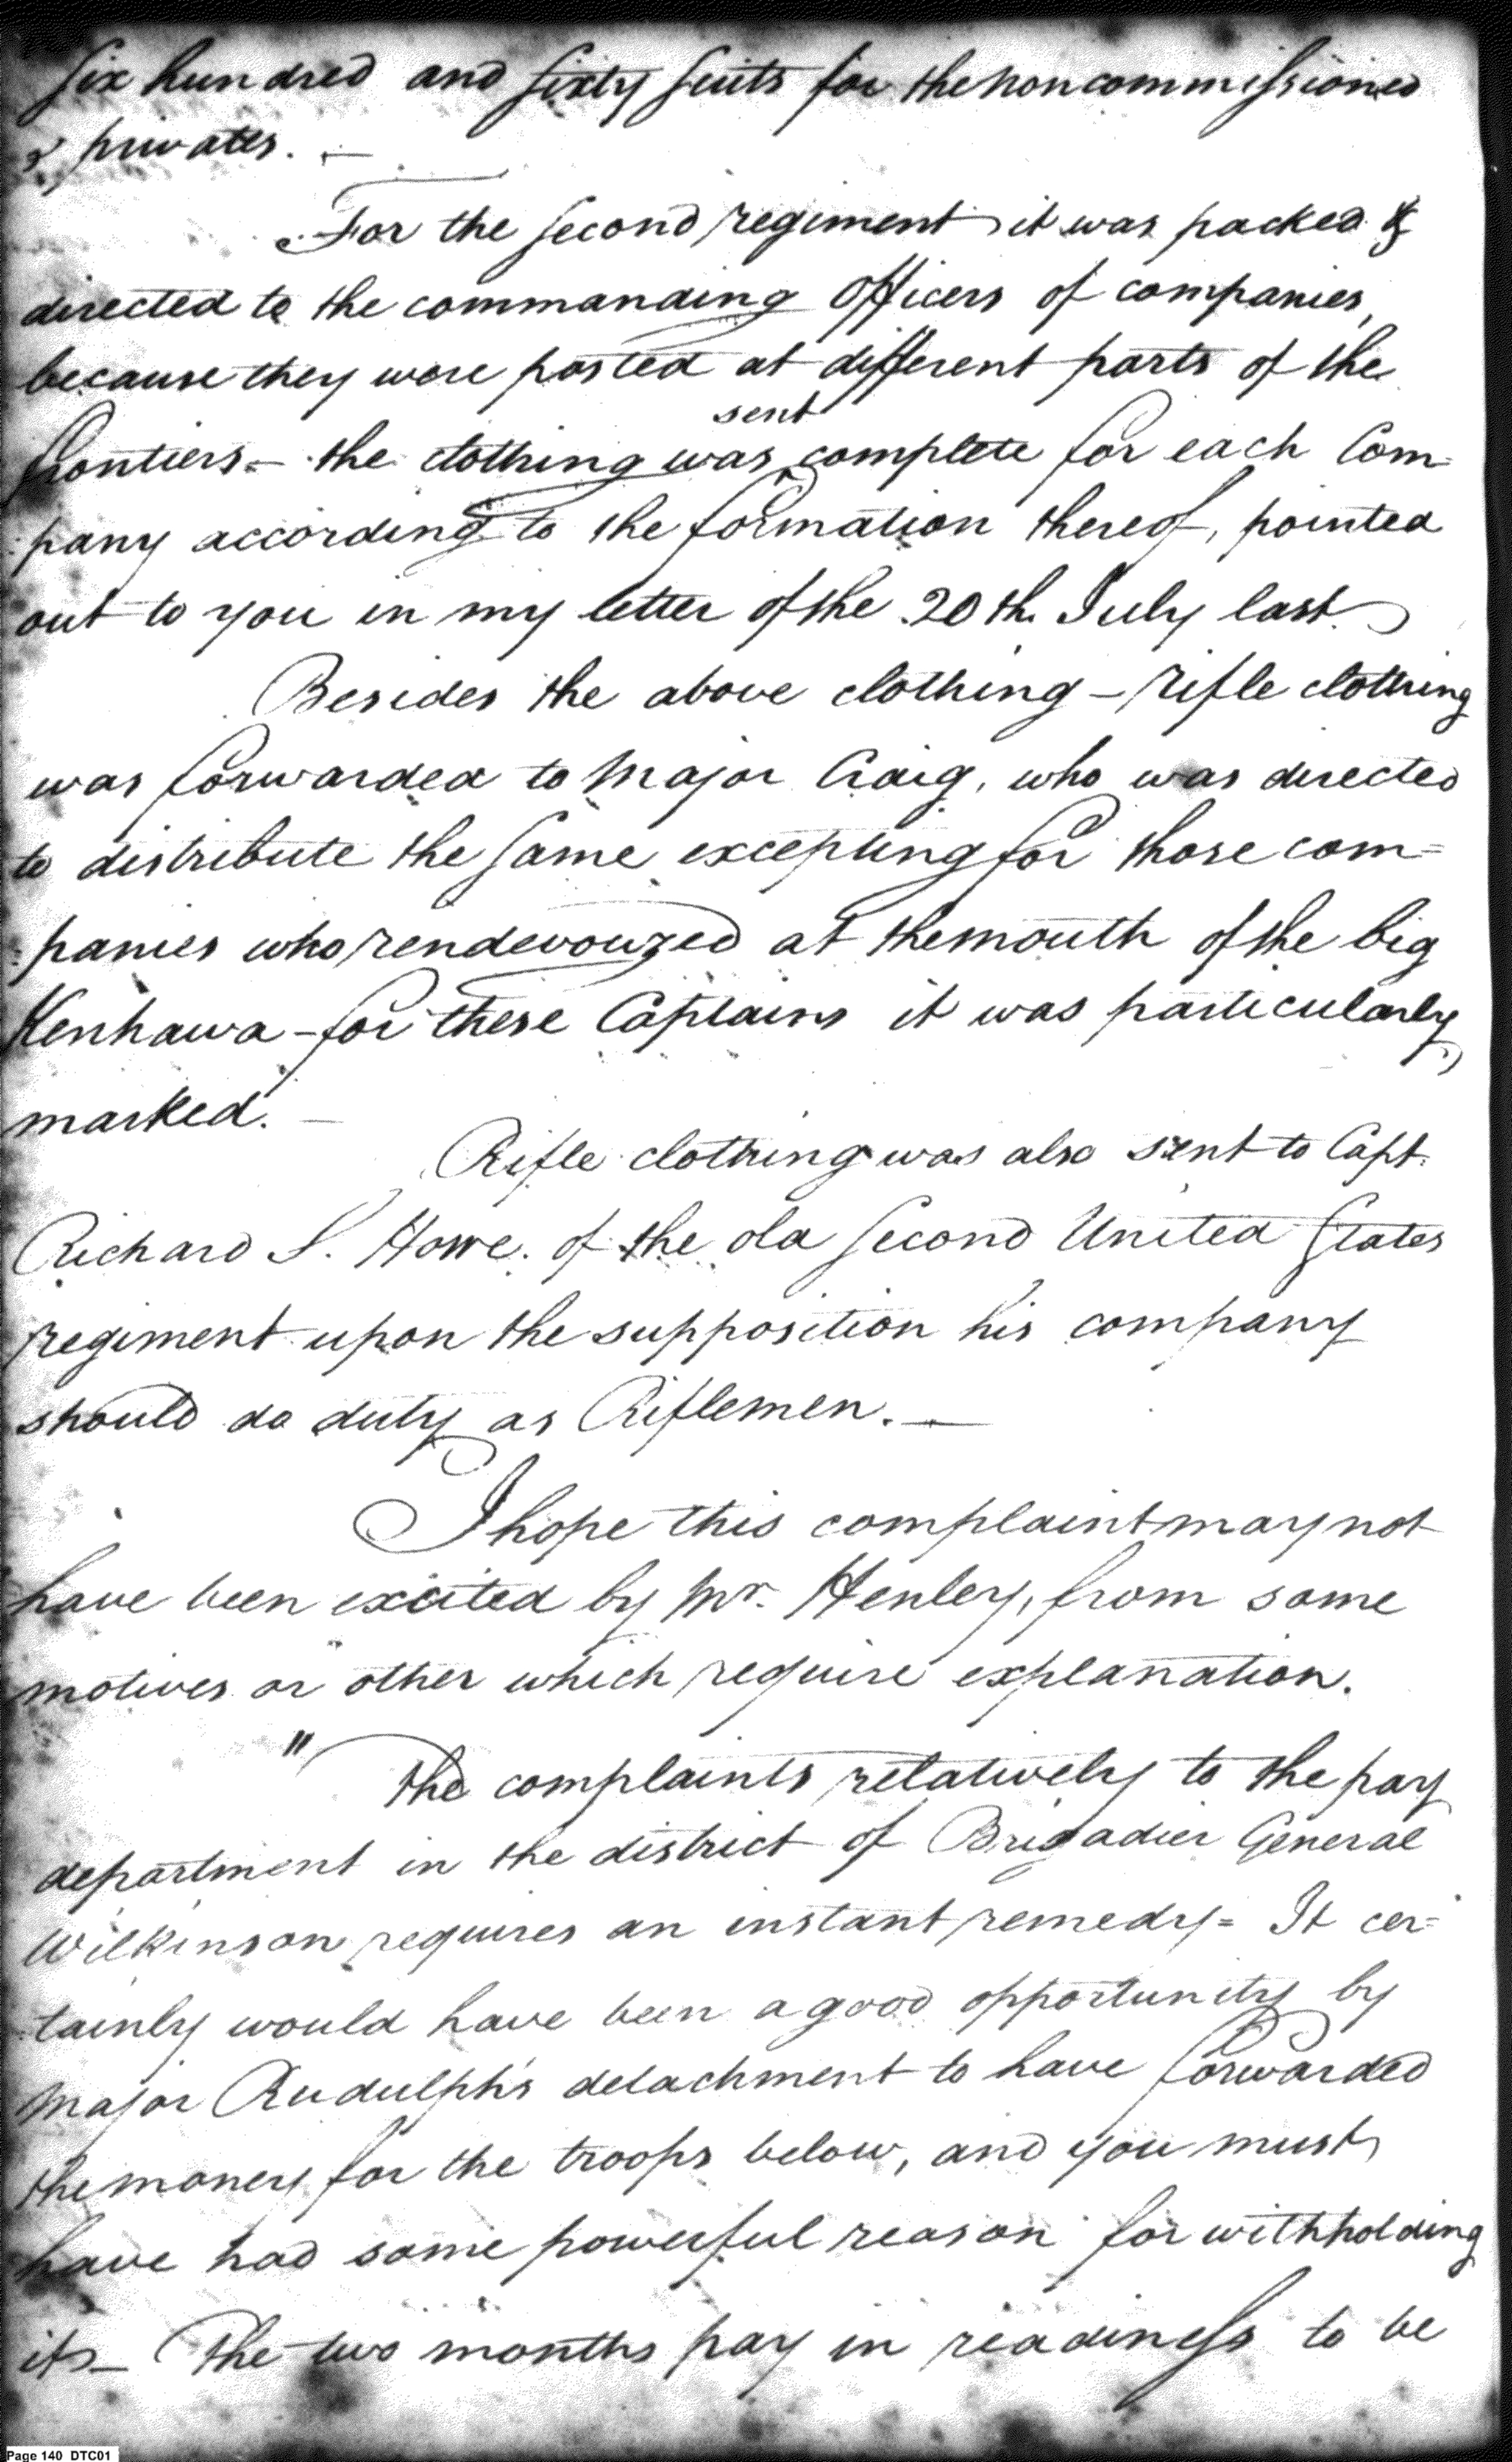 six hundred and sixty suits for the noncommissioned
& privates. —
For the second regiment it was packed &
directed to the commanding Officers of companies,
because they were posted at different parts of the
sent
frontiers — the clothing was complete for each Com-
pany according to the formation thereof, pointed
out to you in my letter of the 20th. July last.
Besides the above clothing — rifle clothing
was forwarded to Major Craig, who was directed
to distribute the same excepting for those com=
=panies who rendevouzed at the mouth of the big
Kenhawa — for these Captains it was particularly
marked. —
Rifle clothing was also sent to Capt.
Richard S. Howe. of the old second United States
regiment upon the supposition his company
should do duty as Riflemen. —
I hope this complaint may not
have been excited by Mr. Henley, from some
motives or other which require explanation.
" The complaints relatively to the pay
department in the district of Brigadier General
Wilkinson requires an instant remedy = It cer=
=tainly would have been a good opportunity by
Major Rudulph's detachment to have forwarded
the money for the troops below, and you must
have had some powerful reason for withholding
it — The two months pay in readiness to be
Page 140 DTC01